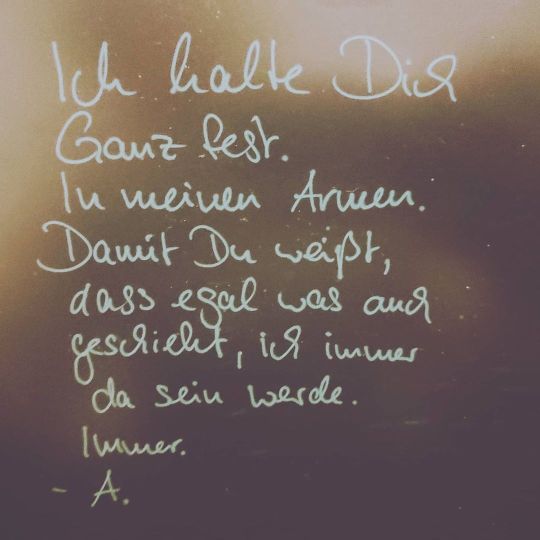 Ich halte Dich
Ganz fest.
In meinen Armen.
Damit Du weißt,
dass egal was auch
geschieht, ich immer
da sein werde.
Immer.
- A.